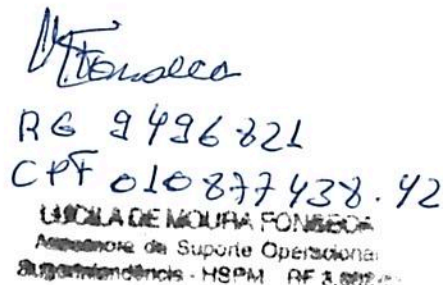 MFonseca
RG 9496821
CPF 010877438.42
LUCILA DE MOURA FONSECA
de Suporte Operacional
Superintendência - HSPM RF